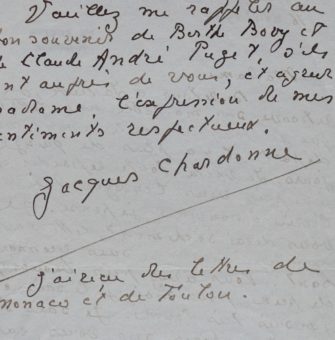 Veuillez me rappeler au
bon souvenir de Berthe Bovy et
de Claude André Puget, s'ils
sont auprès de vous, et agréer
madame, l'expression de mes
sentiments respectueux.
Jacques Chardonne
J'ai reçu des lettres de
monaco et de Toulon.